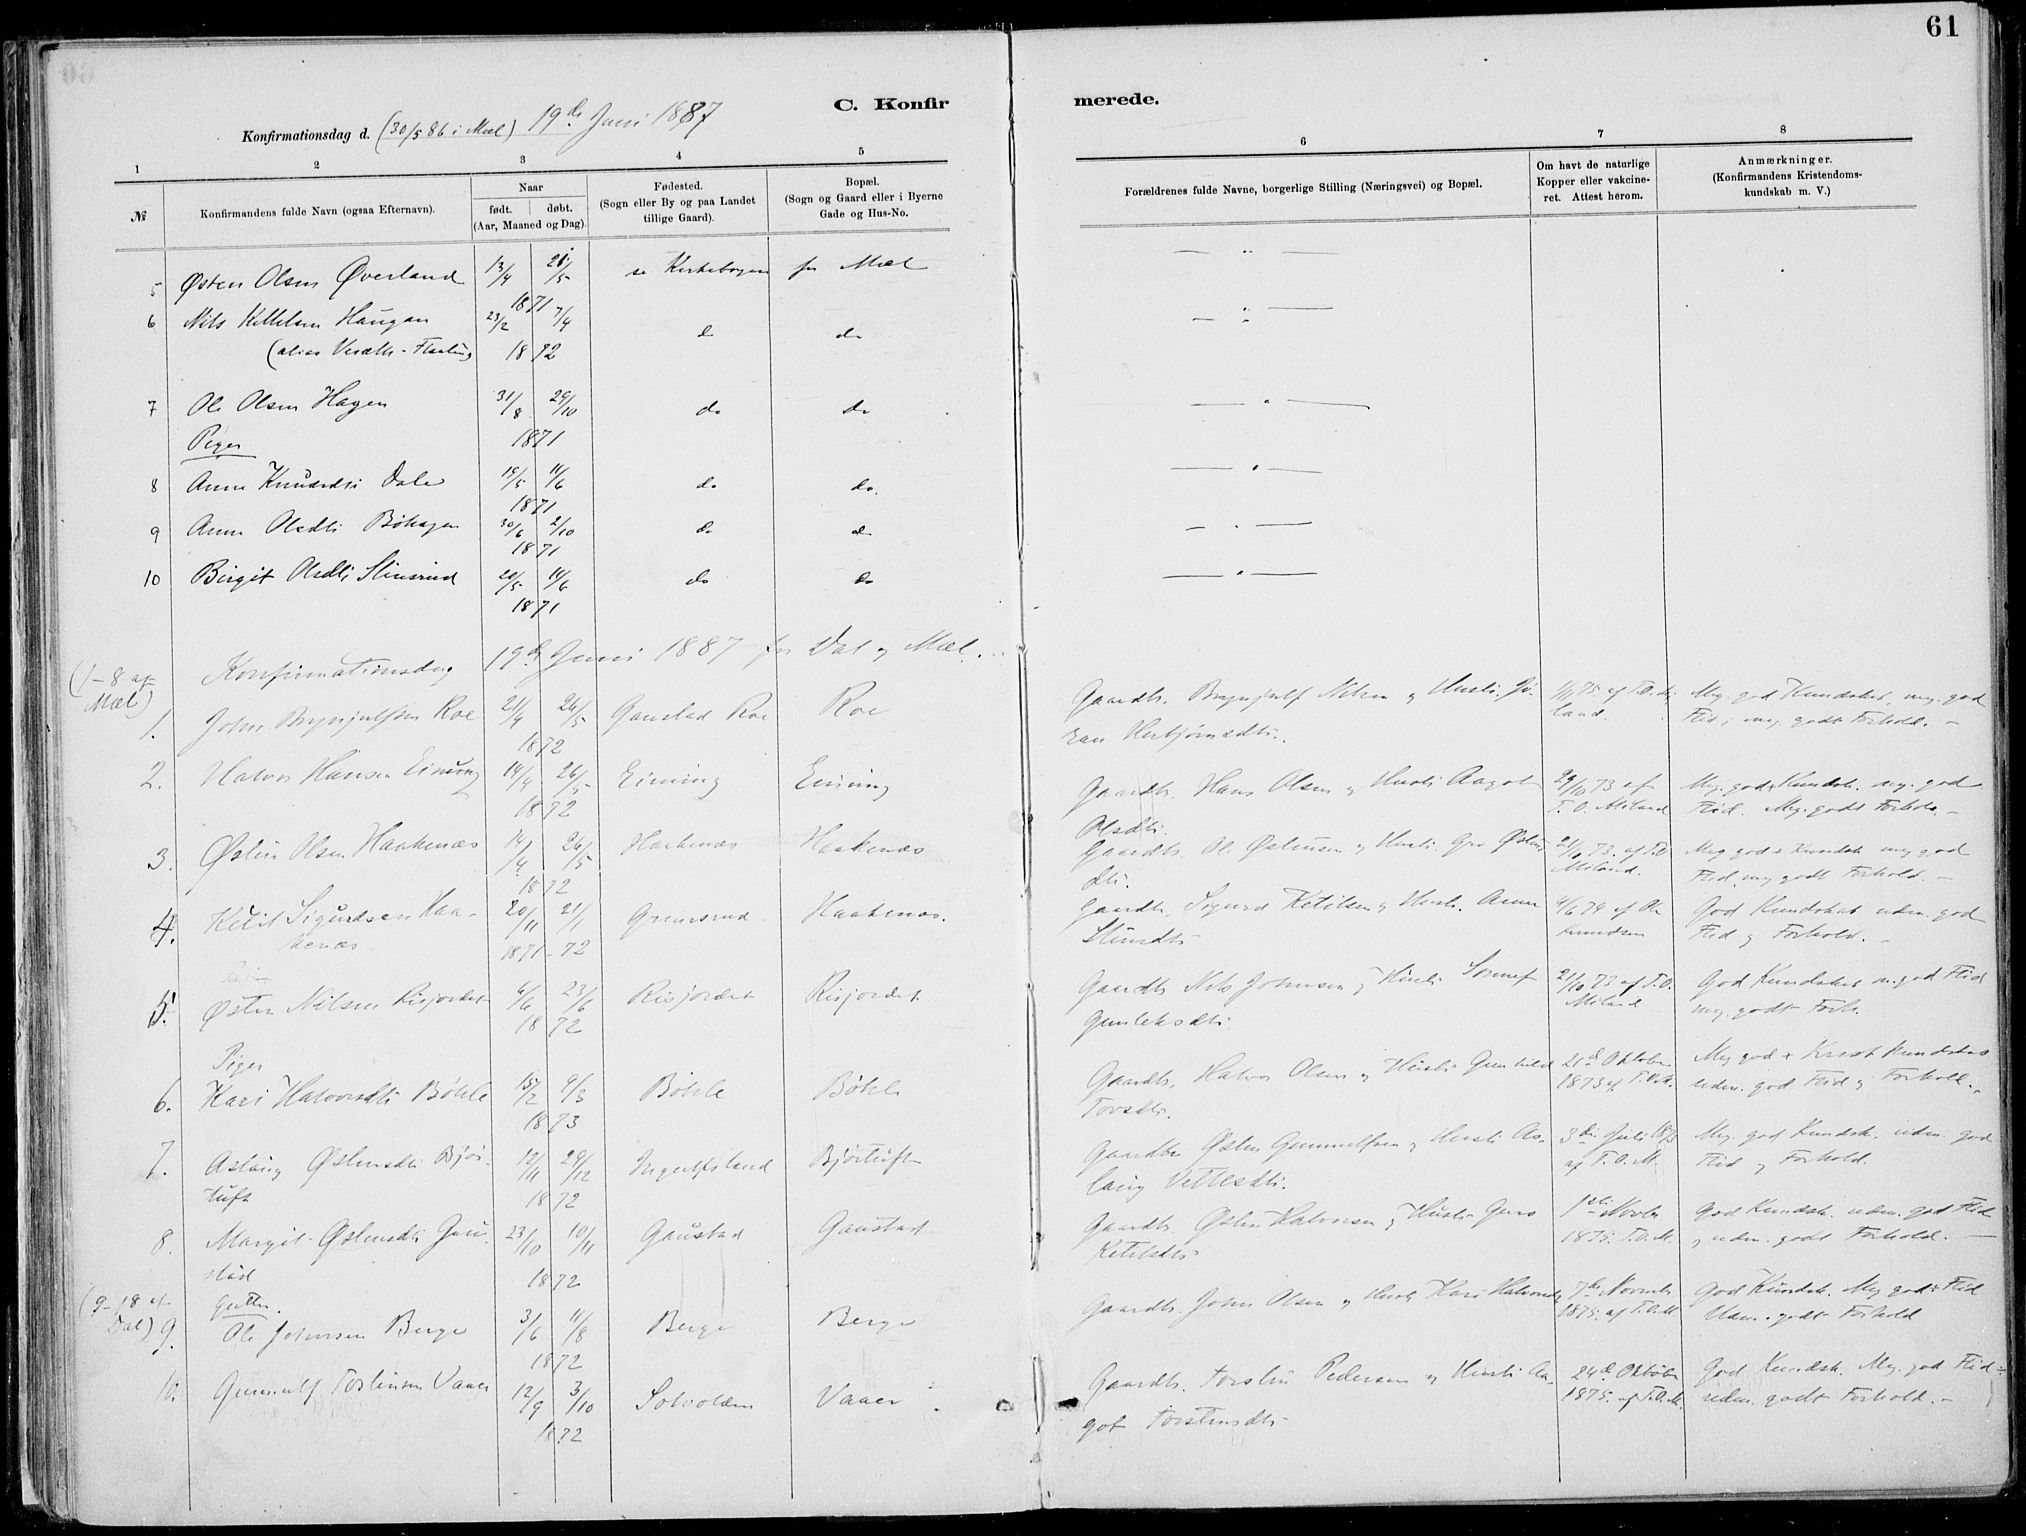 61
C. Konfirmerede.
Konfirmationsdag d. (30/5 86 i Mæl) 19de Juni 1887
1 2 3 4 5 6 7 8
№ Konfirmandens fulde Navn (ogsaa Efternavn). Naar født. døbt. (Aar, Maaned og Dag). Fødested. (Sogn eller By og paa Landet tillige Gaard). Bopæl. (Sogn og Gaard eller i Byerne Gade og Hus-No. Forældrenes fulde Navne, borgerlige Stilling (Næringsvei) og Bopæl. Om havt de naturlige Kopper eller vakcineret. Attest herom. Anmærkninger. (Konfirmandens Kristendomskundskab m. V.)
5 Østen Olsen Øverland 13/4 21/5 1871 se Kirkebogen for Mæl — " —
6 Nils Kittilsen Haugan 23/2 7/4 do do — " —
(alias 1872
7 Ole Olsen Hagen 31/8 29/10 do do — " —
Piger 1871
8 Anne Knudsdtr Dale 19/5 11/6 1871 do do. — " —
9 Anne Olsdtr Bøhagen 30/6 2/10 1871 do do — " —
10 Birgit Olsdtr Stensrud 20/5 11/6 1871 do do — " —
Konfirmationsdag 19de Juni 1887 for Dal og Mæl.
(1-8 af Mæl)
1. John Brynjulfsen Roe 21/4 26/5 1872 Gaustad Roe Roe Gaardbr. Brynjulf Nilsen og Hustr. Jøran Herbjørnsdtr. Meg. god Kundskab, meg. god Flid, meg. godt Forhold. -
2. Halvor Hansen Einung 14/4 26/5 1872 Einung Einung Gaardbr. Hans Olsen og Hustr. Aagot Olsdtr. 29/10 73 af T. O. Miland Meg. god Kundsk. meg. god Flid. Meg. godt Forhold. -
3. Østen Olsen Haakenæs 14/4 26/5 1872 Haakenæs Haakenæs Gaardbr. Ole Østensen og Hustr. Gro Østensdtr. 21/10 73. af T.O. Miland. Meg god Kundsk meg god Flid, meg godt Forhold. -
4. Ketil Sigurdsen Haakenæs 20/11 21/1 1871-72 Grønsrud Haakenæs. Gaardbr. Sigurd Ketilsen og Hustr. Anne Stensdtr 4/6 74 af Ole God Kundskab udm. god Flid og Forhold. -
5. Østen Nilsen Risjordet 6/6 23/6 1872 Risjordet Risjordet Gaardbr Nils Johnsen og Hustr. Gunleksdtr. 21/10 73 af T.O. Miland God Kundskab m. god Flid meg. godt Forh.
Piger
6. Kari Halvorsdtr Bøhle 15/2 9/3 1873 Bøhle Bøhle Gaardbr. Halvor Olsen og Hustr. Gunhild Torsdtr. 21de Oktober 1873 af T.O.M. Meg god Krist kundskab udm. god Flid og Forhold.
7. Aslaug Østensdtr Bjørtuft 12/11 29/12 1872 Ingulfsland Bjørtuft Gaardbr Østen Gunnulfsen og Hustr. Aslaug Vetlesdtr. 3die Juli 1873 af T.O.M. Meg. god Kundsk. udm. god Flid og Forhold.
8. Margit Østensdtr Gaustad 23/10 10/11 1872 Gaustad Gaustad Gaardbr. Østen Halvorsen og Hustr. Guro Ketilsdtr 1ste Novbr 1875. T.O.M. God Kundsk. udm. god Flid og udm. godt Forhold. -
(9-18 af Dal) Gutter.
9. Ole Johnsen Berge 3/6 11/8 1872 Berge Berge Gaardbr. John Olsen og Hustr Kari Halvorsdtr 7de Novembr 1875. af T.O.M God Kundsk. Meg god Flid Udm. godt Forhold
10. Gunnulf Torstensen Vaaer 12/9 3/10 1872 Vaaer Gaardbr. Torsten Pedersen og Hustr. Aagot Torstensdtr 24de Oktober 1875. af T.O.M. God Kundsk. Meg. god Flid udm. godt Forhold. -